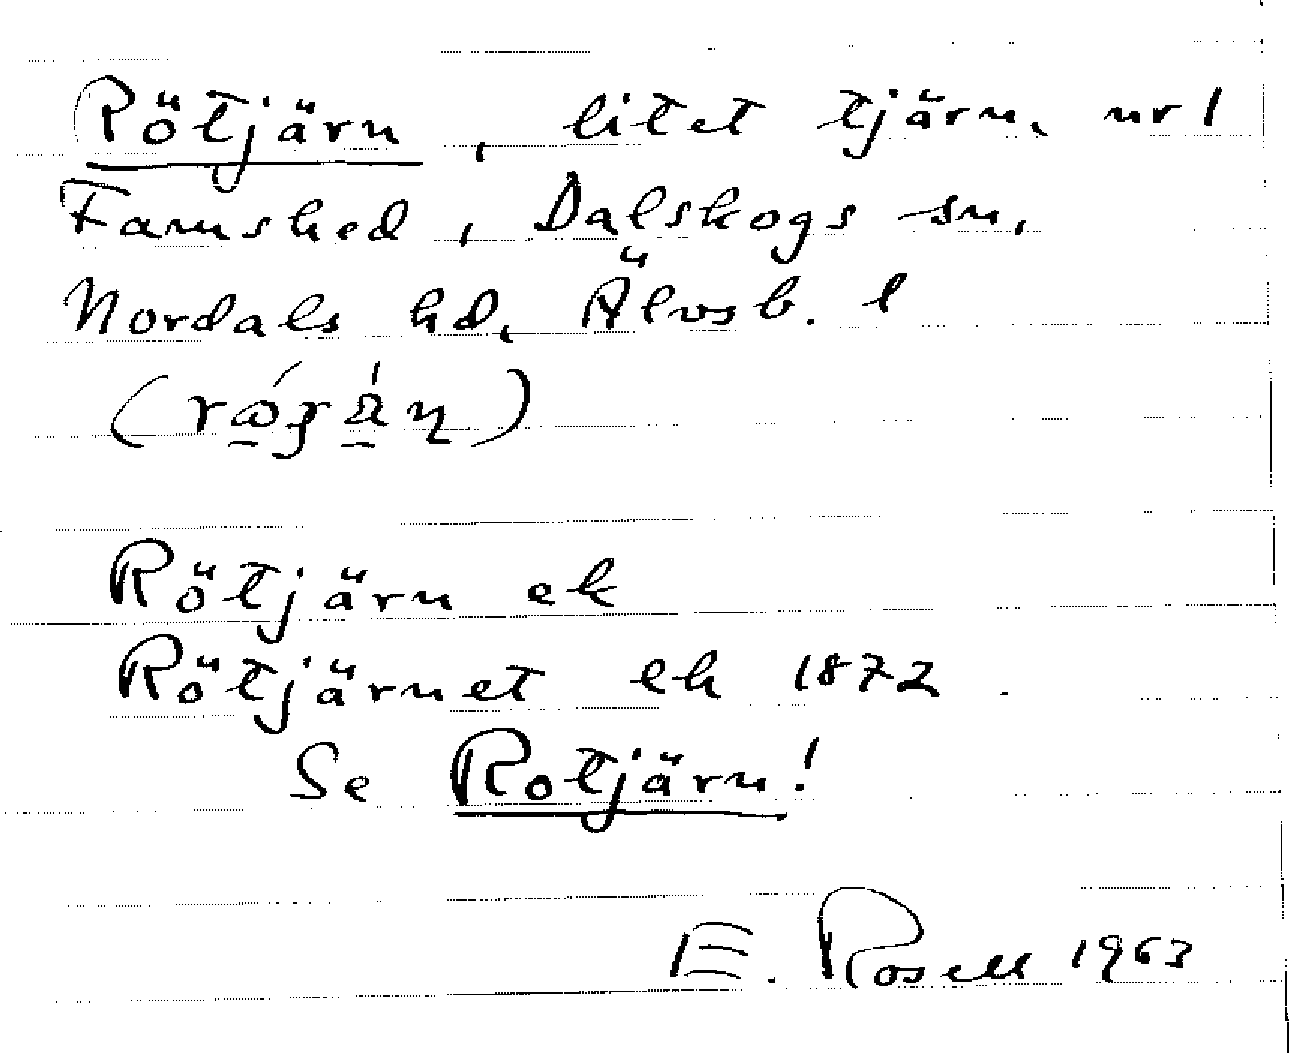 Rötjärn, litet tjärn, nr 1
Famshed, Dalskogs sn,
Nordals hd, Älvsb. l
Rötjärn ek
Rötjärnet ek 1872
Se Rotjärn!
E. Rosell 1963